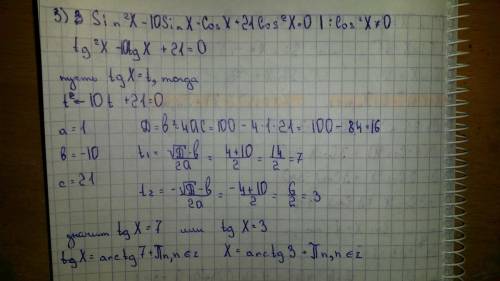 3) 3 Sin²X-10SinX·CosX+21Cos²X=0 | : Cos²X≠0
tg²X-10tgX+21=0
пусть tgX=t, тогда
t²-10t+21=0
a=1 D=в²-4ac=100-4·1·21=100-84=16
в=-10 t₁=(√D-в)/2a=(4+10)/2=14/2=7
c=21 t₂=(-√D-в)/2a=(-4+10)/2=6/2=3
значит tgX=7 или tgX=3
tgX=arctg7+Пn, n∈z X=arctg3+Пn, n∈z